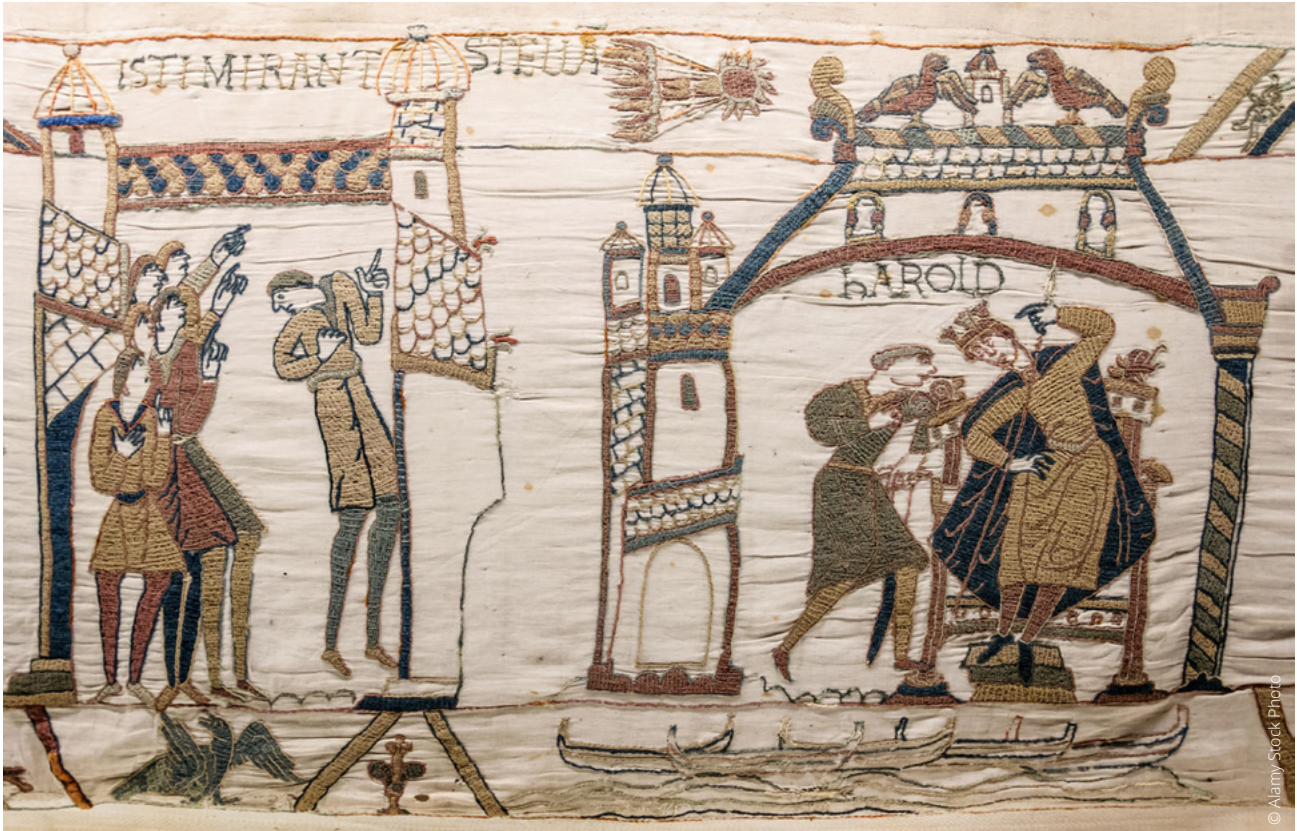 ISTI MIRANT STELLA
hAROLD
© Alamy Stock Photo